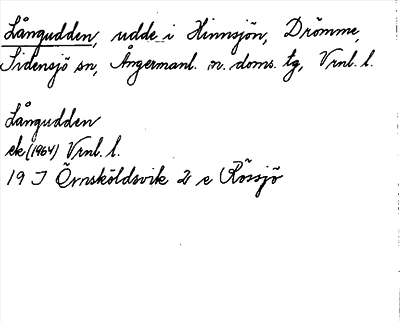 Långudden, udde i Hinnsjön, Drömme,
Sidensjö sn, Ångermanl. n. doms. tg, Vrnl. l.
Långudden
ek (1964) Vrnl. l.
19 J Örnsköldsvik 2 e Rössjö